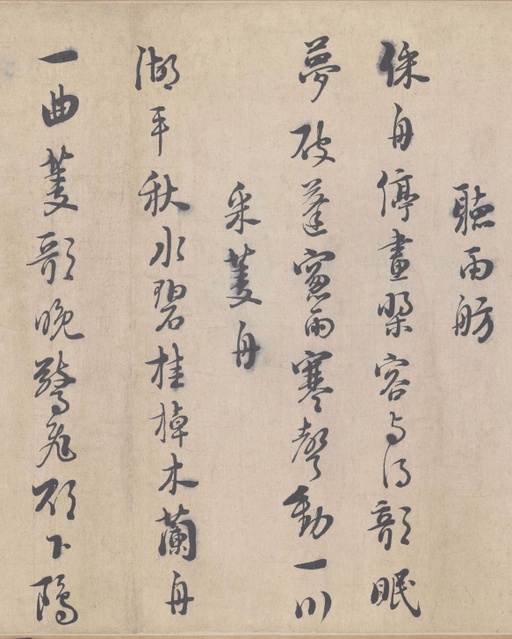 聽雨舫
係舟停畫槳容与得欹眠
夢破蓬窻雨寒聲動一川
采菱舟
湖平秋水碧桂棹木蘭舟
一曲菱歌晚驚飛欲下鷗